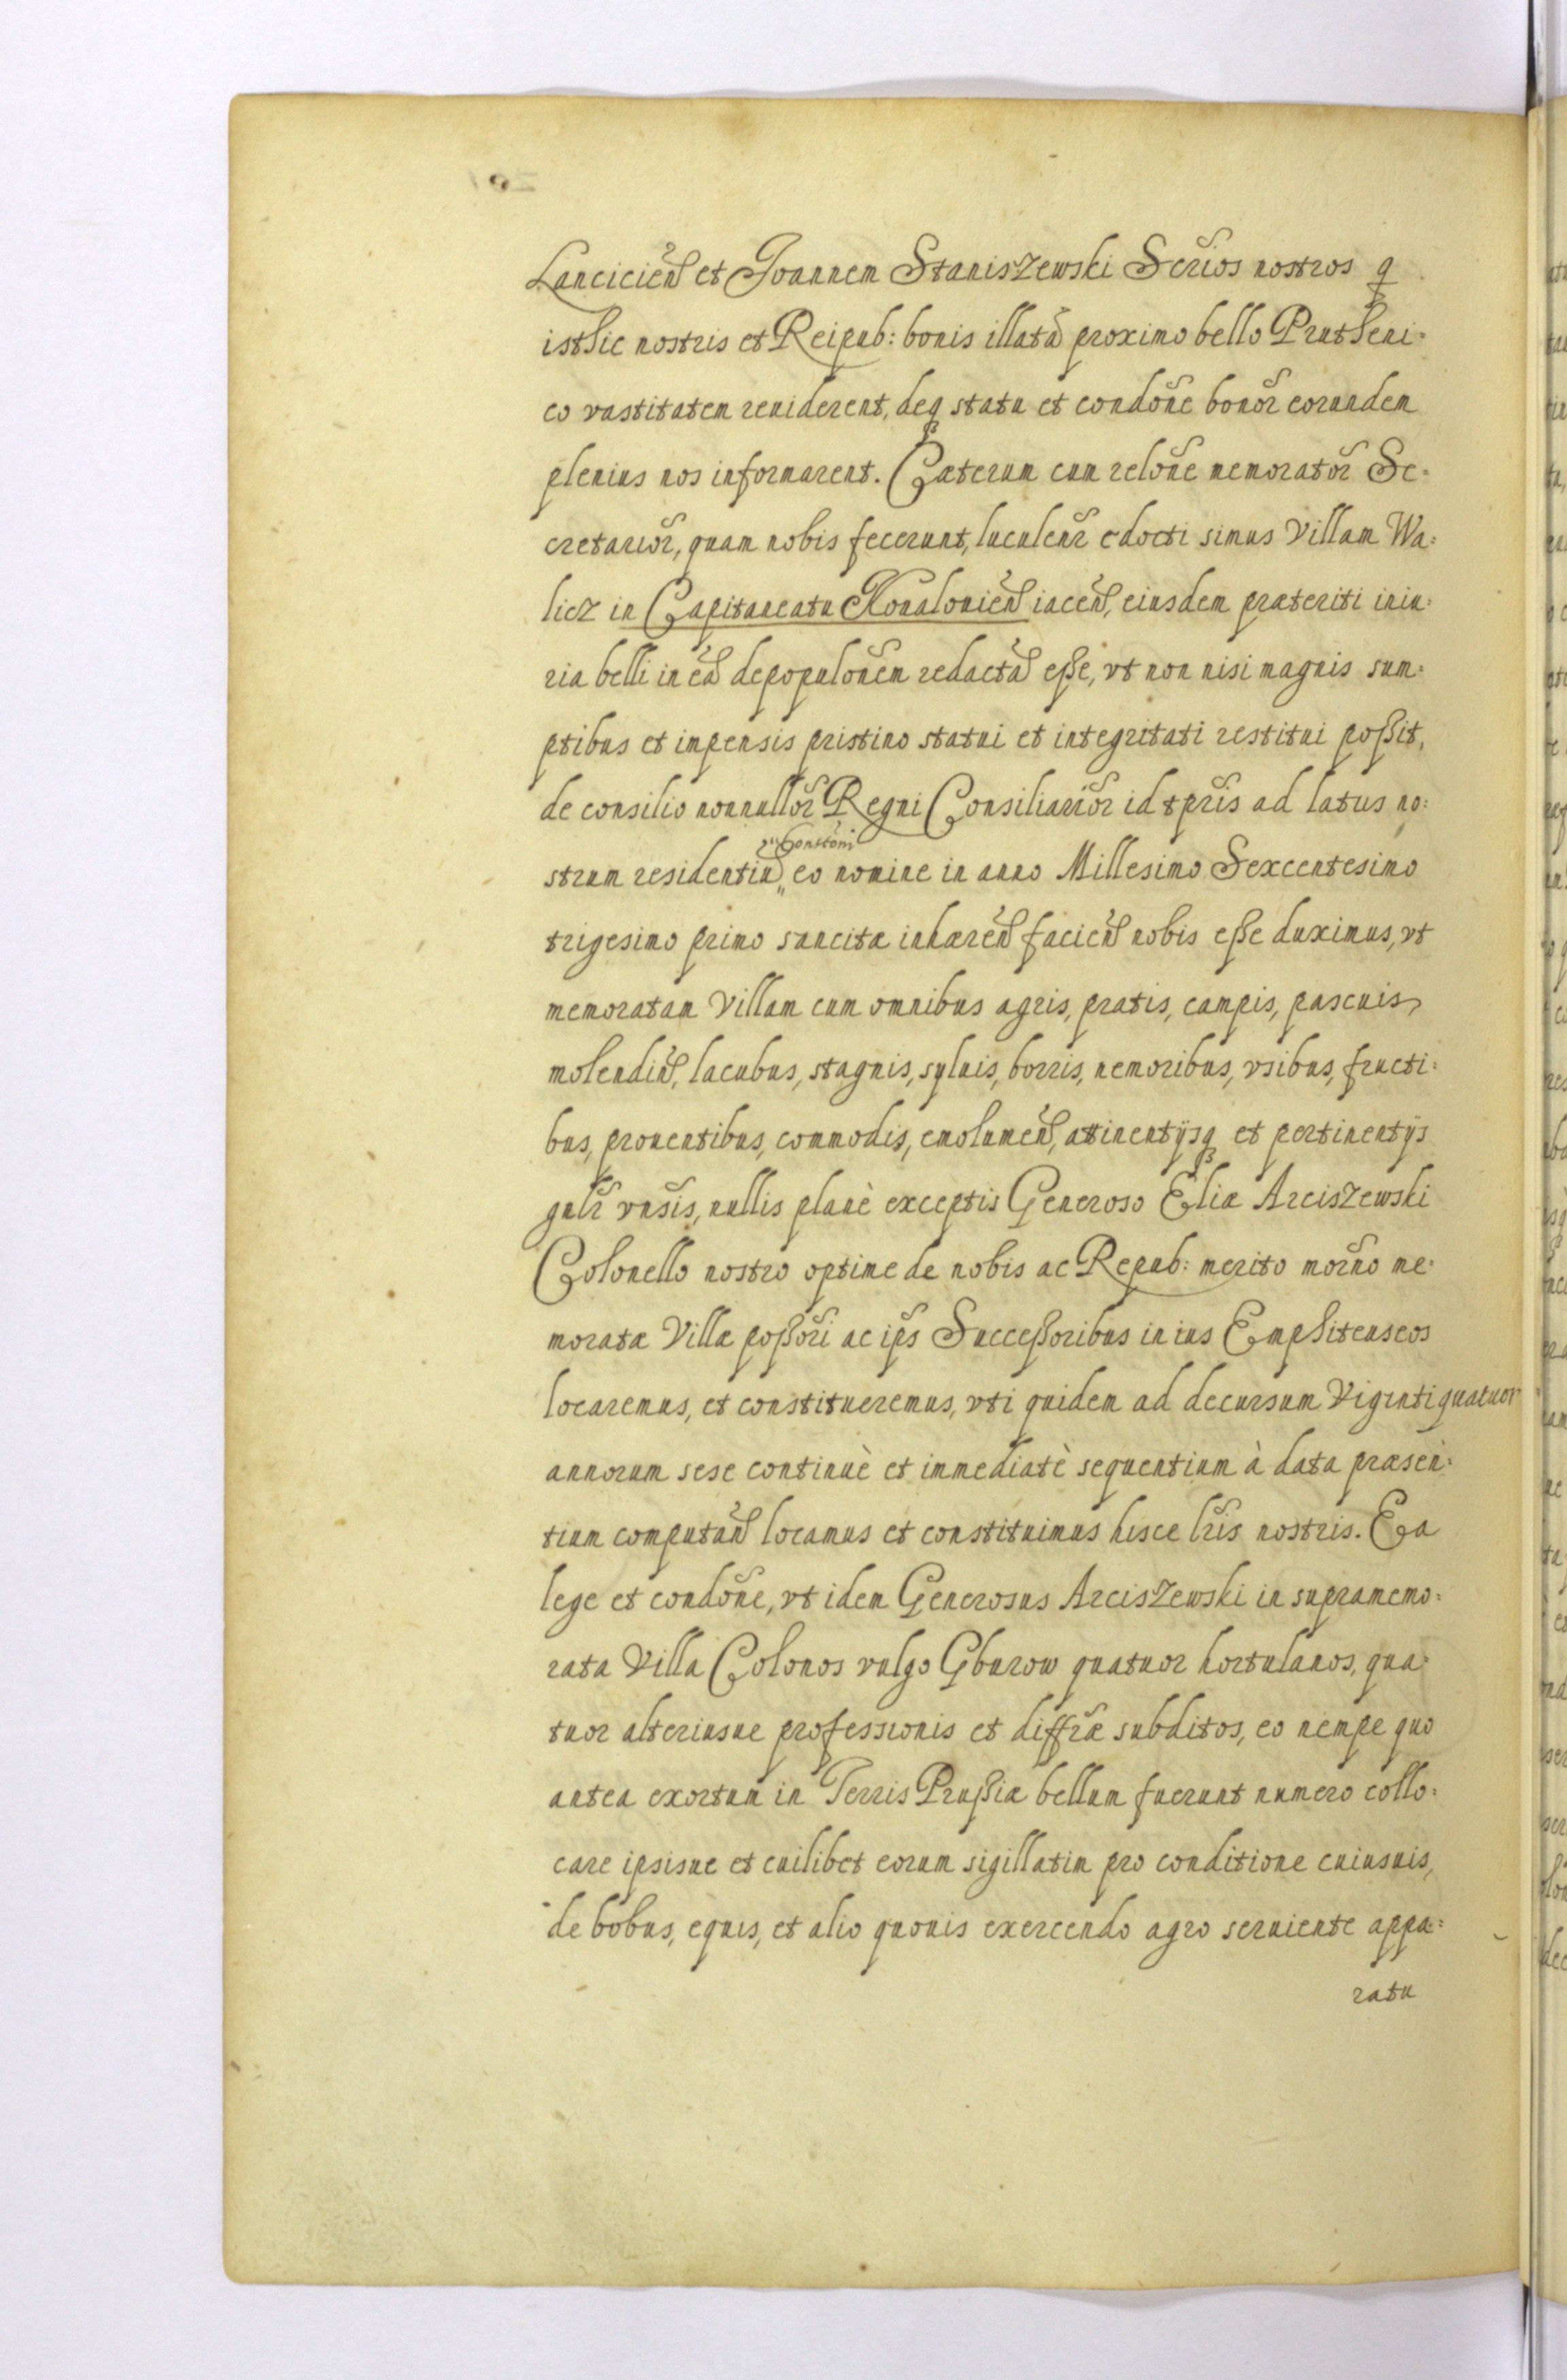 Lancicień et Joannem Staniszewski Scrios nostros q
isthic nostris et Reipub: bonis illatã proximo bello Prutheni-
co vastitatem reuiderent, deq statu et condõne bonor̃ eorundem
plenius nos informarent. Cæterum cum relõne memorator̃ Se-
cretarior̃, quam nobis fecerunt, luculenr̃ edocti simus Villam Wa:
licz in Capitaneatu Kowalouień iaceñ, eiusdem præteriti iniu:
ria belli in eã depopulõnem redactã esse, vt non nisi magnis sum:
ptibus et impensis pristino statui et integritati restitui possit,
de consilio nonnullor̃ Regni Consiliarior̃ id tpris ad latus no:
Constõni
strum residentiũ, eo nomine in anno Millesimo Sexcentesimo
trigesimo primo sancitæ inhæreñ facień nobis esse duximus, vt
memoratam Villam cum omnibus agris, pratis, campis, pascuis,
molendiñ, lacubus, stagnis, syluis, borris, nemoribus, vsibus, fructi:
bus, prouentibus, commodis, emolumeñ, attinentijsq et pertinentijs
gnlr̃ vnsis, nullis planè exceptis Generoso Eliæ Arciszewski
Colonello nostro optime de nobis ac Repub: merito morño me-
moratæ Villæ possõri ac ips Successoribus in ius Emphiteuseos
locaremus, et constitueremus, vti quidem ad decursum Viginti quatuor
annorum sese continuè et immediatè sequentium à data præsen:
tium computañ locamus et constituimus hisce lr̃is nostris. Ea
lege et condõne, vt idem Generosus Arciszewski in supramemo:
rata Villa Colonos vulgo Gburow quatuor hortulanos, qua:
tuor alteriusue professionis et diffr̃æ subditos, eo nempe quo
antea exortum in Terris Prussiæ bellum fuerunt numero collo:
care ipsisue et cuilibet eorum sigillatim pro conditione cuiusuis,
de bobus, equis, et alio quouis exercendo agro seruiente appa:
ratu